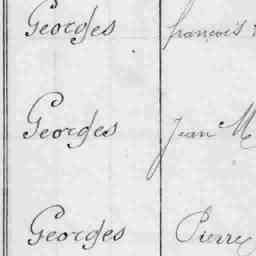 Georges françois
Georges Jean M
Georges Pierre